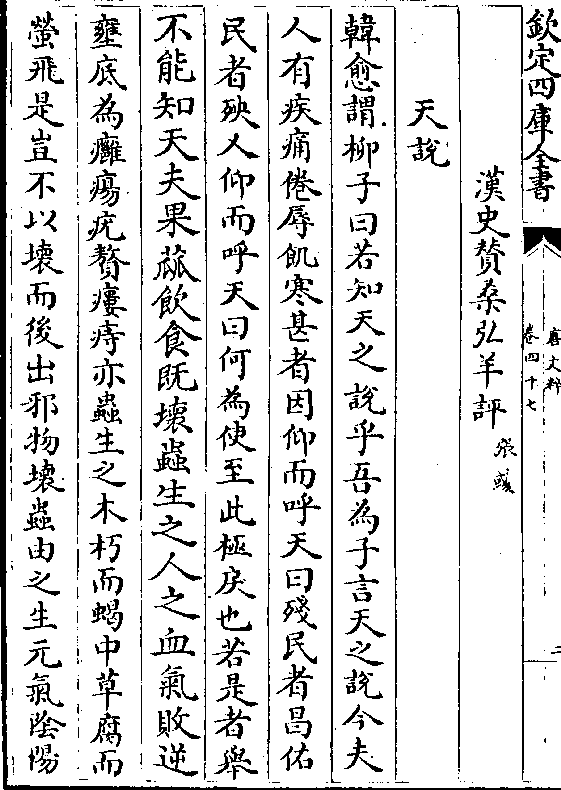 欽定四庫全書
唐文粹
卷四十七
二
漢史贊桑弘羊評
張彧
天說
韓愈謂柳子曰若知天之說乎吾為子言天之說今夫
人有疾痛倦辱飢寒甚者因仰而呼天曰殘民者昌佑
民者殃又仰而呼天曰何為使至此極戾也若是者舉
不能知天夫果蓏飲食既壞蟲生之人之血氣敗逆
壅底為癰瘍疣贅瘻痔亦蟲生之木朽而蝎中草腐而
螢飛是豈不以壞而後出邪物壞蟲由之生元氣陰陽